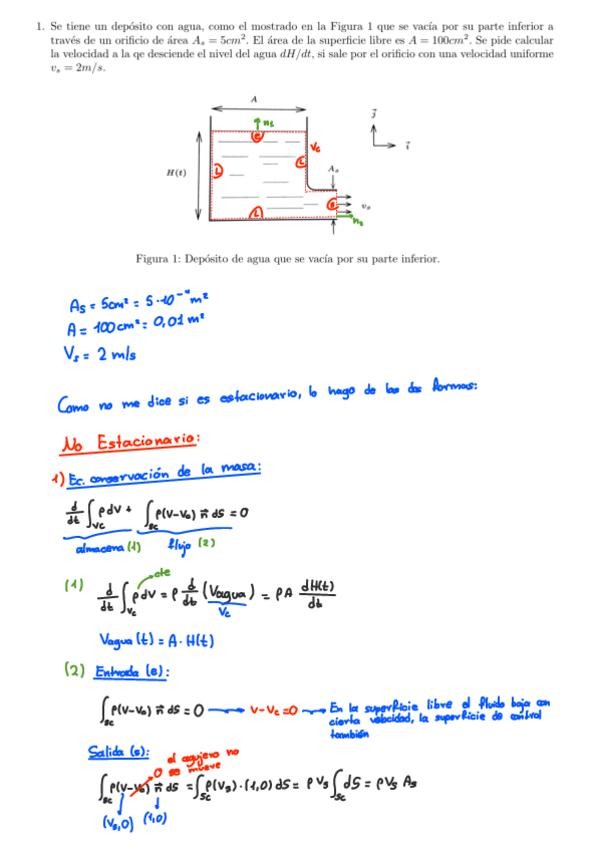 1. Se tiene un depósito con agua, como el mostrado en la Figura 1 que se vacía por su parte inferior a
través de un orificio de área Aₛ = 5cm². El área de la superficie libre es A = 100cm². Se pide calcular
la velocidad a la qe desciende el nivel del agua dH/dt, si sale por el orificio con una velocidad uniforme
vₛ = 2m/s.
A
n₁
e
j
Vc
i
H(t)
L
L
Aₛ
s
vₛ
n₂
L
Figura 1: Depósito de agua que se vacía por su parte inferior.
Aₛ = 5cm² = 5·10⁻⁴m²
A = 100cm² = 0,01 m²
Vₛ = 2 m/s
Como no me dice si es estacionario, lo hago de las dos formas:
No Estacionario:
1) Ec. conservación de la masa:
d/dt ∫_VC ρdV + ∫_SC ρ(V-Vc) n dS = 0
almacena (1) flujo (2)
cte
(1) d/dt ∫_VC ρdV = ρ d/dt (Vagua) = ρA dH(t)/dt
Vc
Vagua(t) = A·H(t)
(2) Entrada (e):
∫_SC ρ(V-Vc) n dS = 0 → V-Vc=0 → En la superficie libre el fluido baja con
cierta velocidad, la superficie de control
también
Salida (s):
el agujero no
0 se mueve
∫_SC ρ(V-Vc) n dS = ∫_SC ρ(Vₛ)·(1,0) dS = ρ Vₛ ∫_SC dS = ρVₛ Aₛ
(Vₛ,0) (1,0)